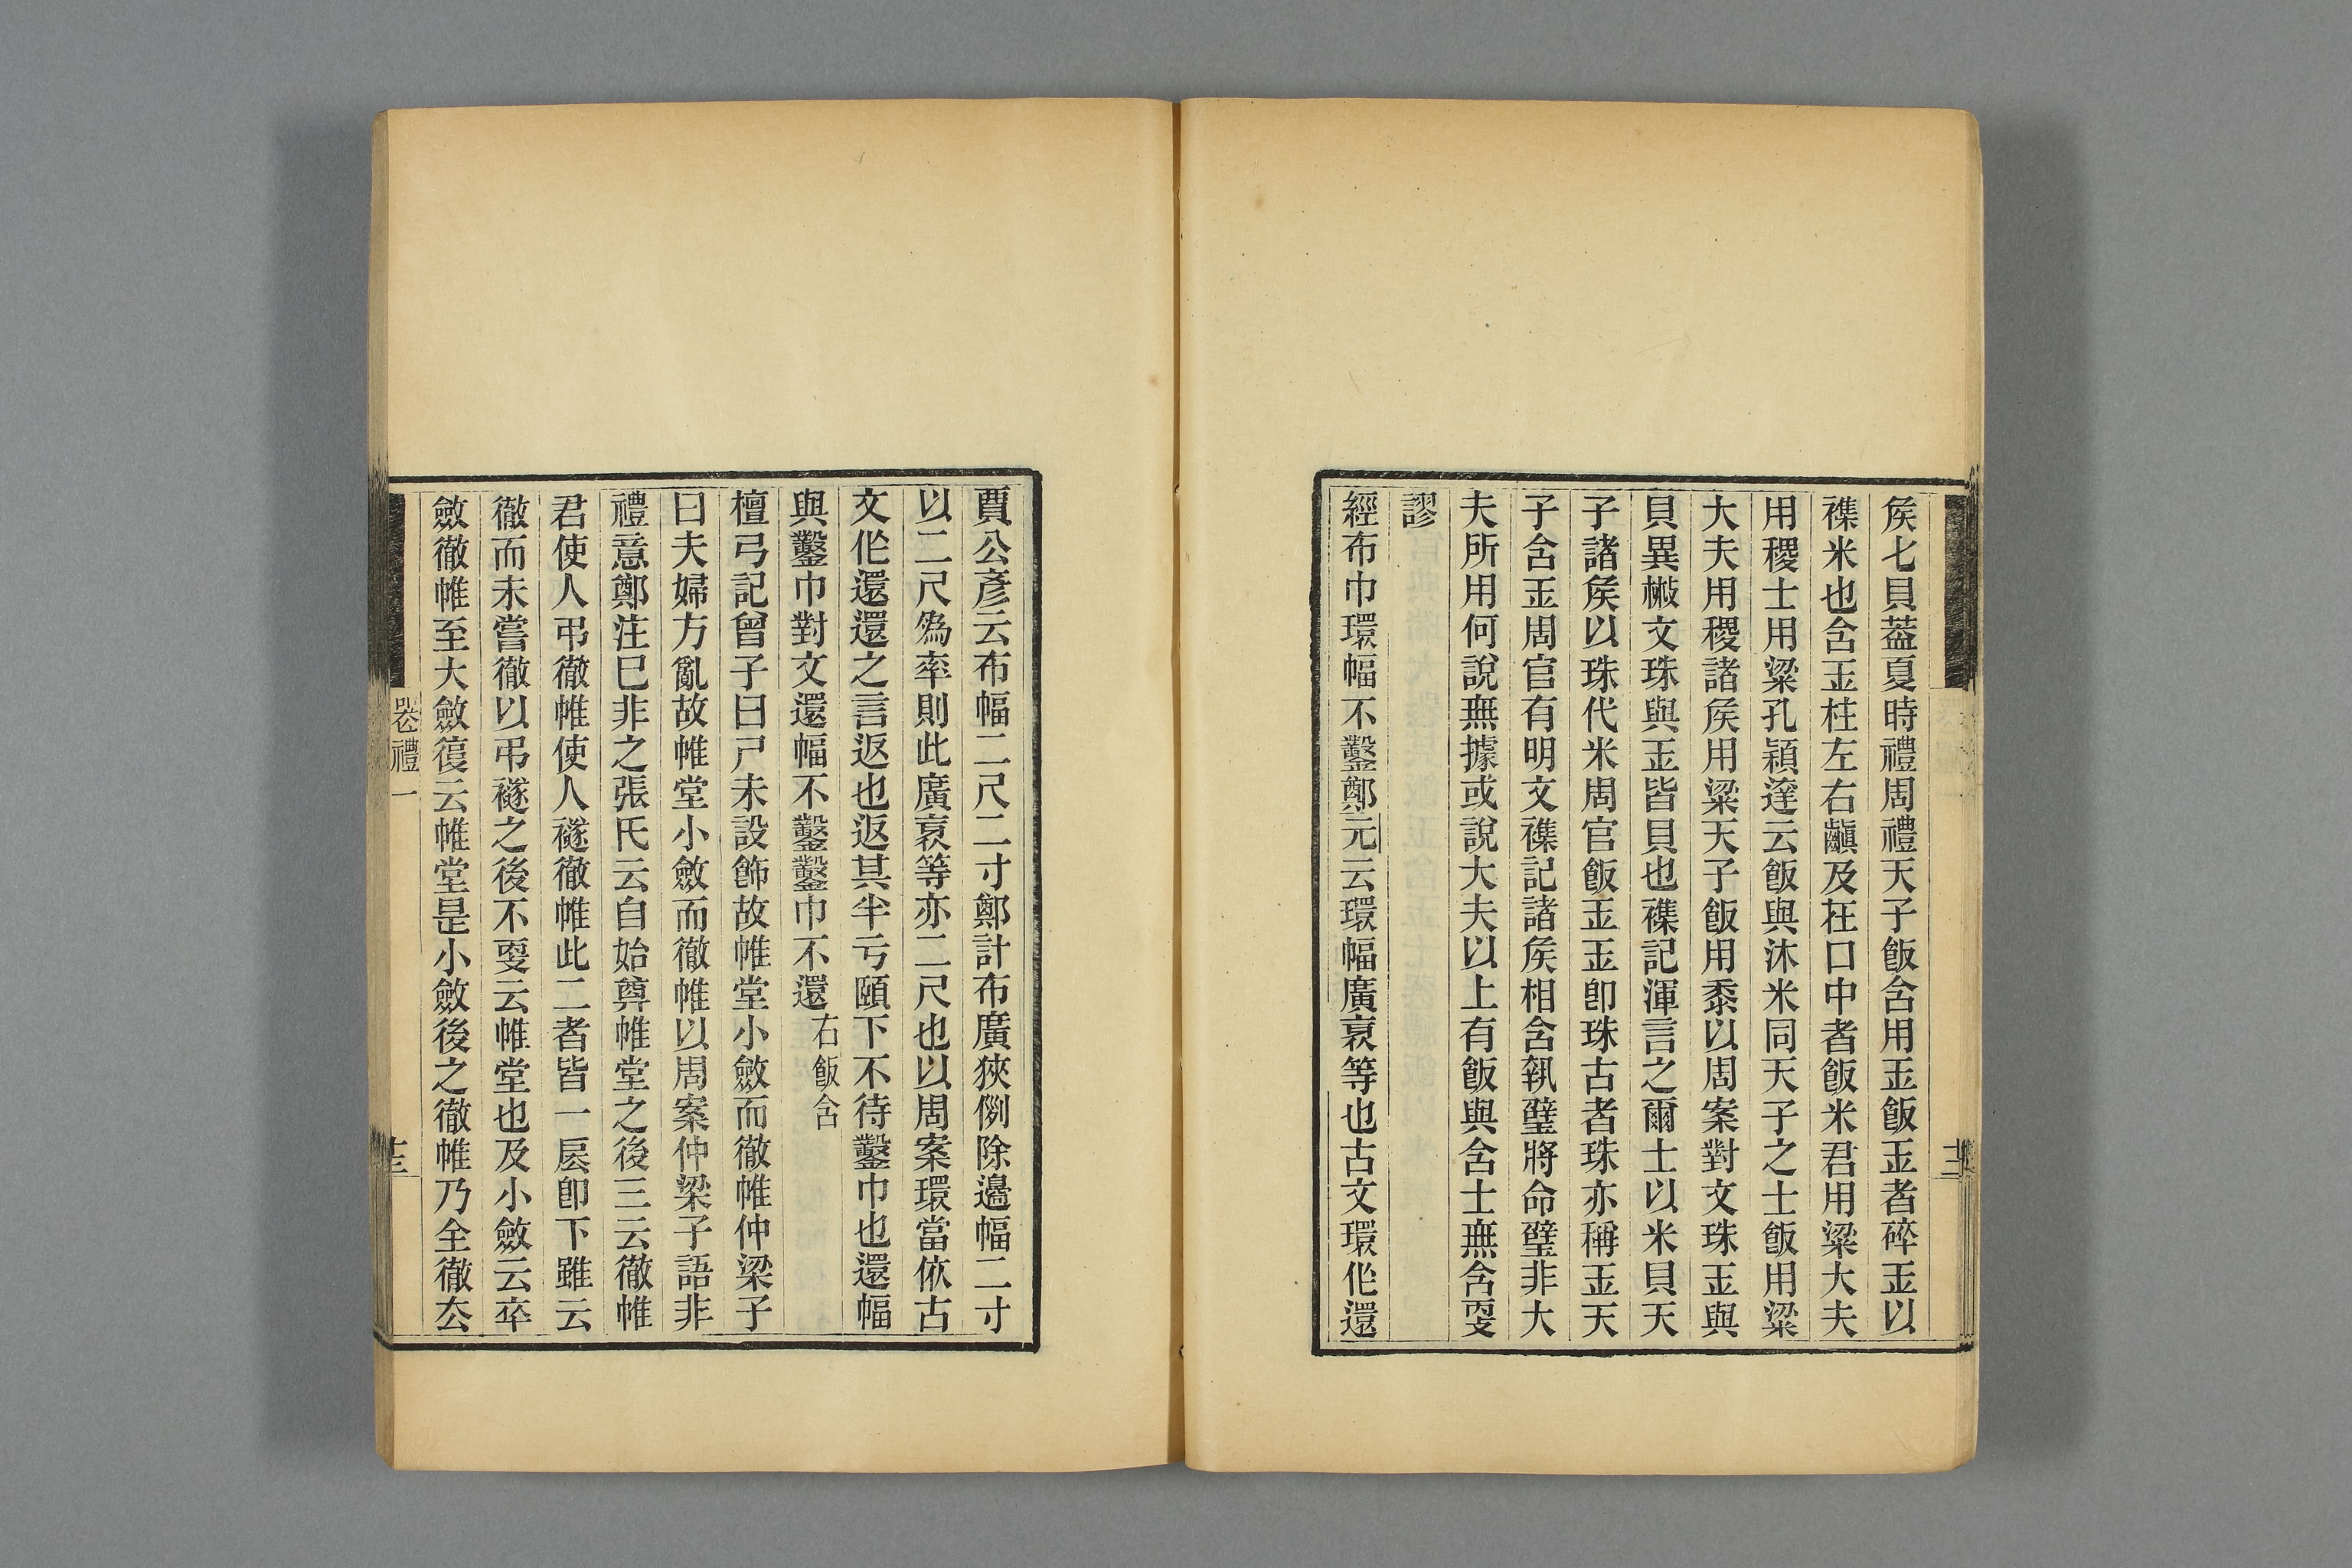 矦七貝葢夏時禮周禮天子飯含用玉飯玉者碎玉以
襍米也含玉柱左右齻及在口中者飯米君用粱大夫
用稷士用粱孔穎達云飯與沐米同天子之士飯用粱
大夫用稷諸矦用粱天子飯用黍以周案對文珠玉與
貝異㪚文珠與玉皆貝也襍記渾言之爾士以米貝天
子諸矦以珠代米周官飯玉玉卽珠古者珠亦稱玉天
子含玉周官有明文襍記諸矦相含執璧將命璧非大
夫所用何說無據或說大夫以上有飯與含士無含㪅
謬
經布巾環幅不鑿鄭元云環幅廣袤等也古文環作還
賈公彥云布幅二尺二寸鄭計布廣狹例除邊幅二寸
以二尺爲率則此廣袤等亦二尺也以周案環當依古
文作還還之言返也返其半亏頤下不待鑿巾也還幅
與鑿巾對文還幅不鑿鑿巾不還右飯含
檀弓記曾子曰尸未設飾故帷堂小斂而徹帷仲梁子
曰夫婦方亂故帷堂小斂而徹帷以周案仲梁子語非
禮意鄭注巳非之張氏云自始尊帷堂之後三云徹帷
君使人弔徹帷使人襚徹帷此二者皆一扆卽下雖云
徹而未嘗徹以弔襚之後不㪅云帷堂也及小斂云卒
斂徹帷至大斂復云帷堂是小斂後之徹帷乃全徹厺
卷禮一
十三
十二